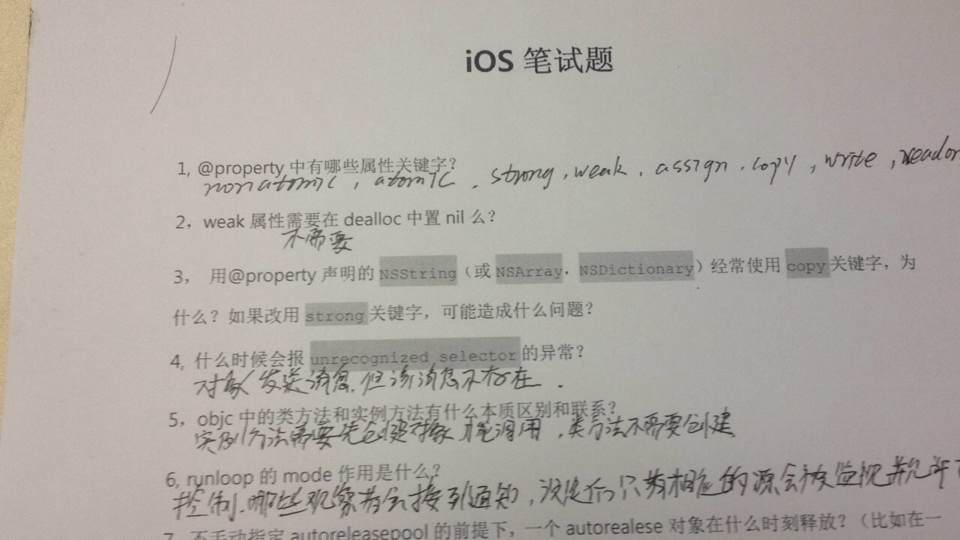 iOS 笔试题
1, @property 中有哪些属性关键字?
nonatomic, atomic, strong, weak, assign, copy, write, reador
2, weak 属性需要在 dealloc 中置 nil 么?
不需要
3, 用@property 声明的 NSString (或 NSArray, NSDictionary) 经常使用 copy 关键字, 为
什么? 如果改用 strong 关键字, 可能造成什么问题?
4, 什么时候会报 unrecognized selector 的异常?
对象发送消息, 但该消息不存在.
5, objc 中的类方法和实例方法有什么本质区别和联系?
实例方法需要先创建对象才能调用, 类方法不需要创建
6, runloop 的 mode 作用是什么?
控制哪些观察者会接到通知, 设定后只为相应的源会被监视并允许
7, 不手动指定 autoreleasepool 的前提下, 一个 autorealese 对象在什么时刻释放? (比如在一